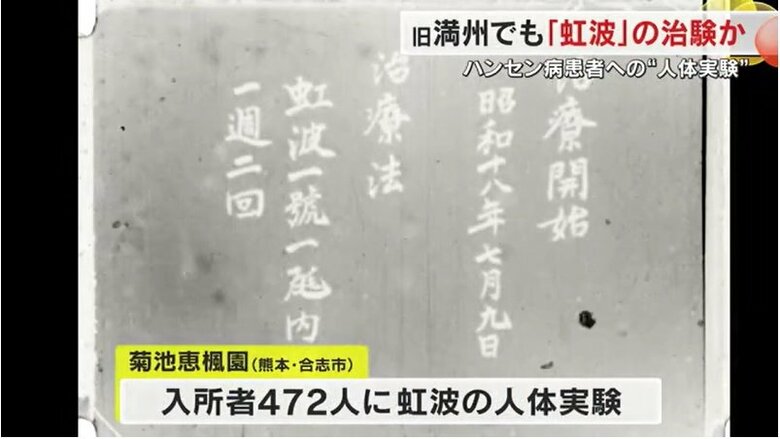 旧満州でも「虹波」の治験か
ハンセン病患者への“人体実験”
治療開始
昭和十八年七月九日
治療法
虹波一號一瓱内
一週二回
菊池恵楓園(熊本・合志市)
入所者472人に虹波の人体実験